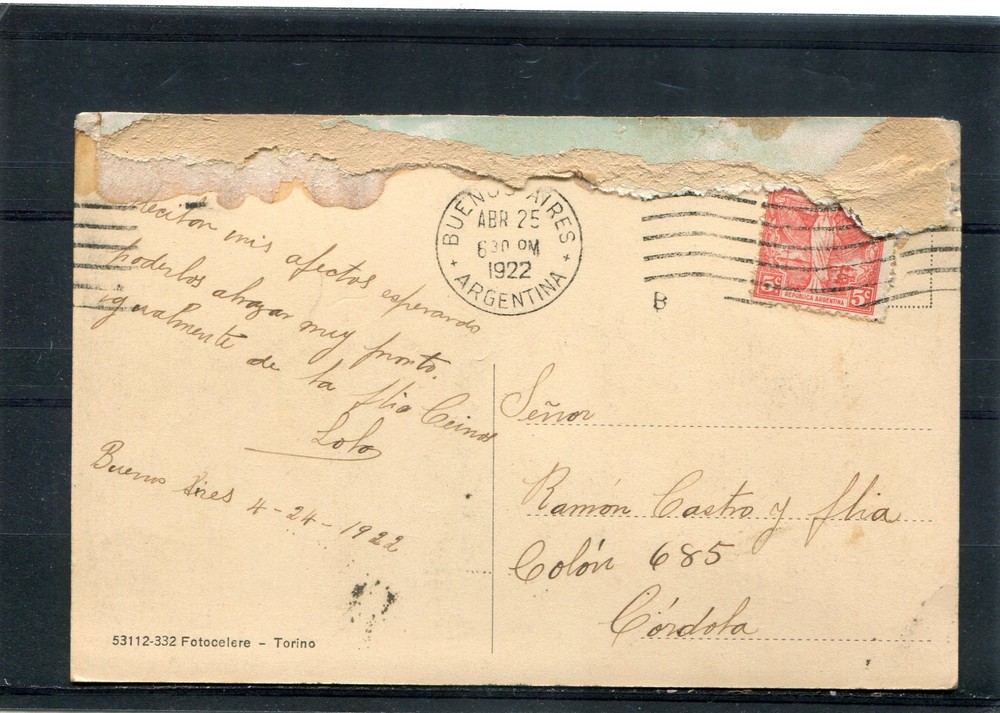 mis afectos esperando
poderlos abrazar muy pronto.
igualmente de la flia
Lolo
Buenos Aires 4-24-1922
53112-332 Fotocelere - Torino
BUENOS AIRES
ABR 25
630 PM
1922
ARGENTINA
B
5c REPUBLICA ARGENTINA 5c
Señor
Ramón Castro y flia
Colón 685
Córdoba